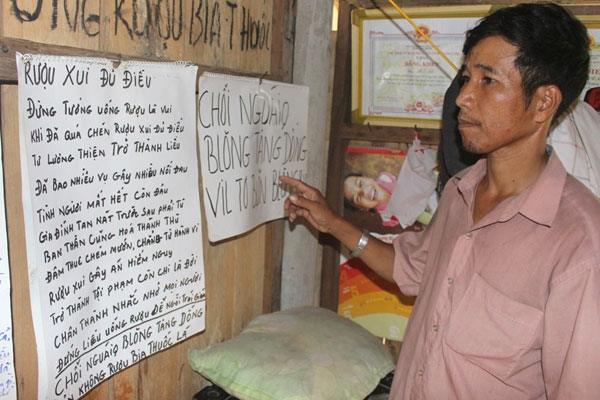 UỐNG RƯỢU BIA THUỐC
RƯỢU XUI ĐỦ ĐIỀU
ĐỪNG TƯỞNG UỐNG RƯỢU LÀ VUI
KHI ĐÃ QUÁ CHÉN RƯỢU XUI ĐỦ ĐIỀU
TỪ LƯƠNG THIỆN TRỞ THÀNH LIỀU
ĐÃ BAO NHIÊU VỤ GÂY NHIỀU NỖI ĐAU
TÌNH NGƯỜI MẤT HẾT CÒN ĐÂU
GIA ĐÌNH TAN NÁT TRƯỚC SAU PHẢI TÙ
BẢN THÂN CŨNG HOÁ THÀNH THÙ
ĐÂM THUÊ CHÉM MƯỚN, CHẲNG TỪ HÀNH VI
RƯỢU XUI GÂY ÁN HIỂM NGUY
TRỞ THÀNH TỘI PHẠM CÒN CHI LÀ ĐỜI
CHÂN THÀNH NHẮC NHỞ MỌI NGƯỜI
ĐỪNG LIỀU UỐNG RƯỢU ĐỂ NGỒI TRẠI GIAM
CHÓI NGUAIQ BLÔNG TĂNG DÔNG
KHÔNG RƯỢU BIA THUỐC LÁ
CHÓI NGUAIQ
BLÔNG TĂNG DÔNG
VIL TƠ
BẰNG KHEN